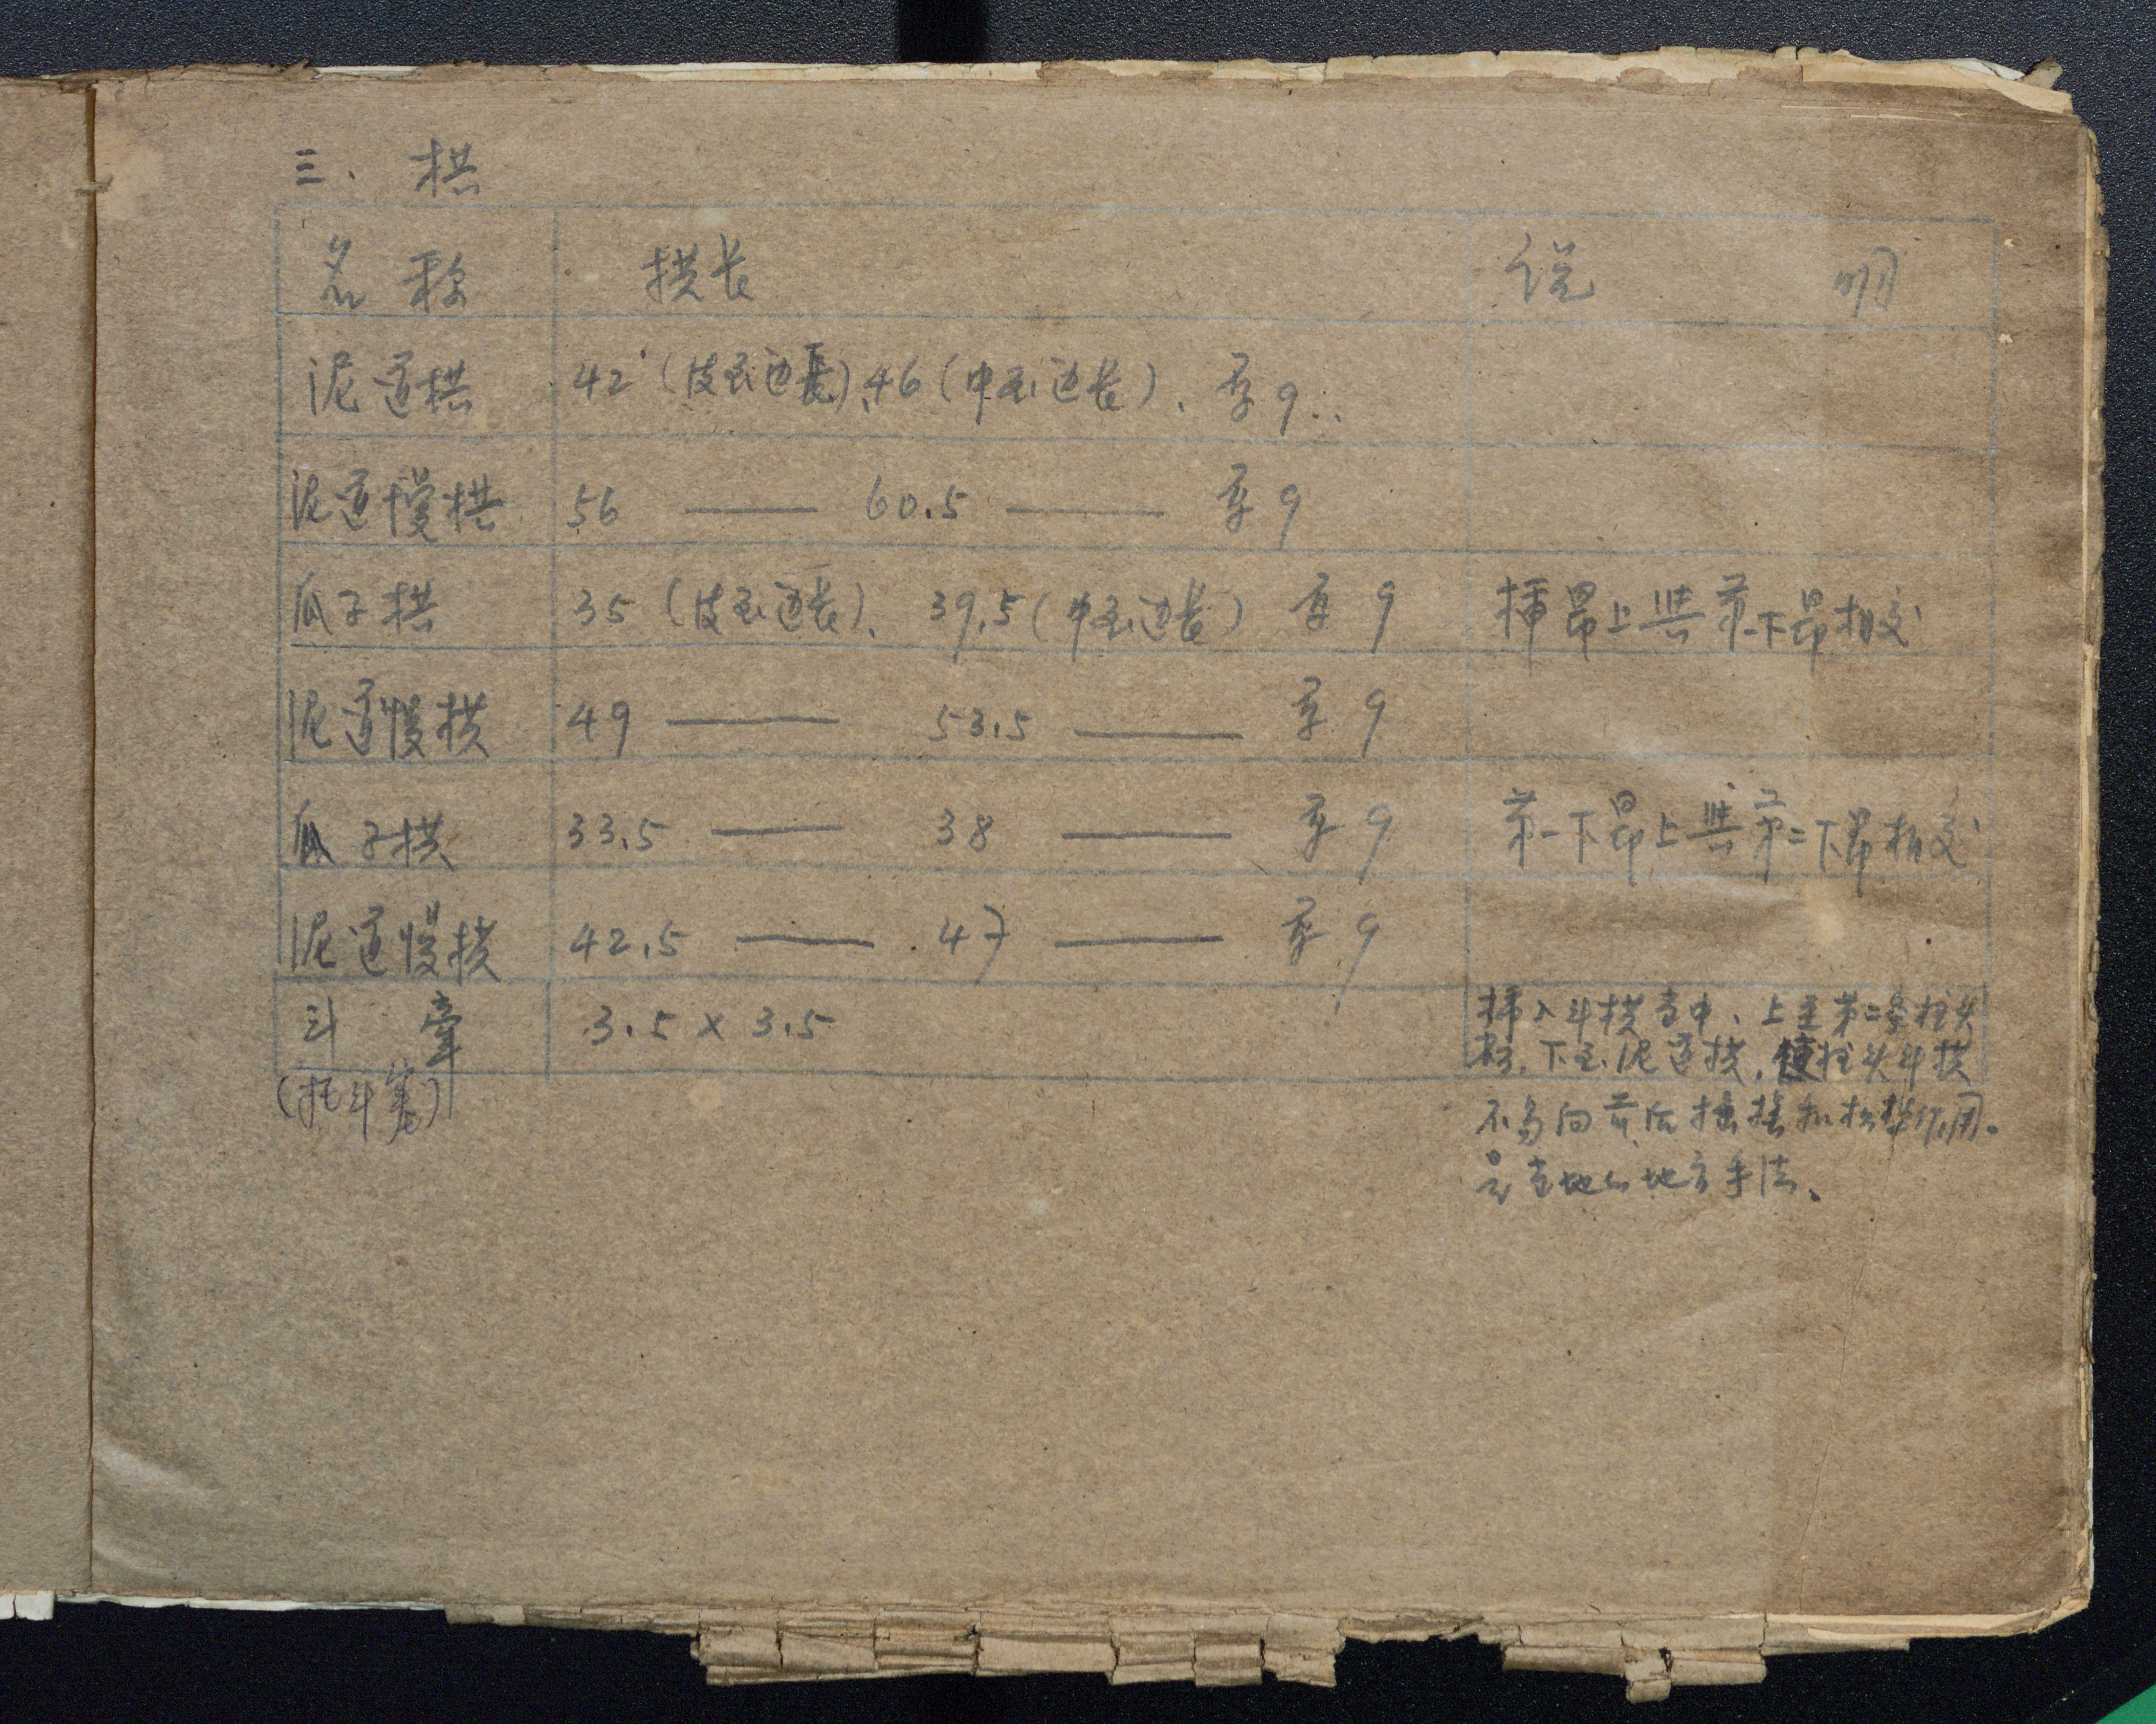 三、 栱
名称 拱长 说明
泥道栱 42（皮至边长）、46（中至边长）、厚9
泥道慢栱 56 —— 60.5 —— 厚9
瓜子栱 35（皮至边长）、 39.5（中至边长） 厚9 插昂上与第一下昂相交
泥道慢拱 49 —— 53.5 —— 厚9
瓜子拱 33.5 —— 38 —— 厚9 第一下昂上与第二下昂相交
泥道慢拱 42.5 —— 47 —— 厚9
斗牵 3.5 × 3.5 插入斗拱当中、上至第二条柱头
（托斗） 枋，下至泥道拱，使柱头斗拱
不多向前后摇摆和作用。
是当地的地方手法、